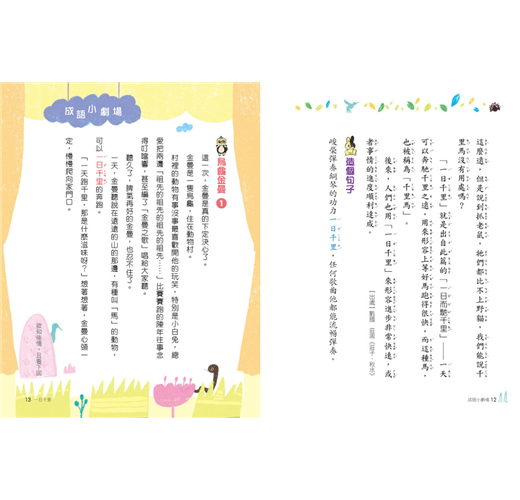 這麼遠，但是說到抓老鼠，牠們都比不上野貓，我們能說千
里馬沒有用處嗎？
「一日千里」就是出自此篇的「一日而馳千里」——一天
可以奔馳千里之遠，用來形容上等好馬跑得很快，而這種馬，
也被稱為「千里馬」。
後來，人們也用「一日千里」來形容進步非常快速，或
者事情的進度順利達成。
【出處】戰國 莊周《莊子‧秋水》
造個句子
彈奏鋼琴的功力一日千里，任何歌曲他都能流暢彈奏。
成語小劇場 12
成語小劇場
烏龜金曼 1
這一次，金曼是真的下定決心了。
金曼是一隻烏龜，住在動物村。
村裡的動物有事沒事最喜歡開他的玩笑，特別是小白兔，總
愛把兩邊「祖先的祖先的祖先的祖先……」比賽賽跑的陳年往事念
得叮噹響，甚至編了「金曼之歌」唱給大家聽。
聽久了，脾氣再好的金曼，也忍不住了。
一天，金曼聽說在遙遠的山的那邊，有種叫「馬」的動物，
可以一日千里的奔跑。
「一天跑千里，那是什麼滋味好？」想著想著，金曼心頭一
定，慢慢爬向家門口。
欲知後情，且看下回
13 一日千里